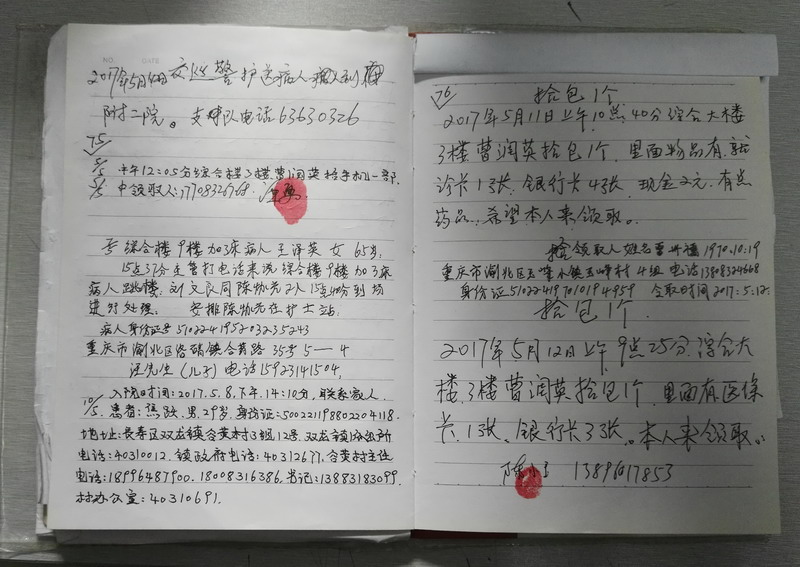 NO. DATE
2017年5月 日交巡警护送病人 到
附二院。支队电话63630326
75
5/5 中午12:05分综合楼3楼曹润英拾手机一部
5/5 中领取人:17708326768.
5/5 综合楼9楼加3床病人王泽英 女 65岁,
15点37分主管打电话来说综合楼9楼加3床
病人跳楼,刘文队同陈协光2人15点40分到场
进行处理。安排陈协光在护士站,
病人身份证号510224195203235243
重庆市渝北区洛碛镇合青路35号5—4
汪先生(儿子)电话15923141504,
入院时间:2017.5.8,下午14:10分,联系家人,
10/5. 患者: 男,29岁,身份证:500221198802204118.
地址:长寿区双龙镇谷黄村3组12号,双龙镇派出所
电话:40310012. 镇政府电话:40312677,谷黄村主任
电话:18996487900. 18008316386,书记:13883183099,
村办公室:40310691.
76 拾包1个
2017年5月11日上午10点40分综合大楼
3楼曹润英拾包1个,里面物品有,就
诊卡1张,银行卡4张,现金2元,有点
药品,希望本人来领取。
领取人姓名 1970.10.19
重庆市渝北区玉峰山镇玉峰村4组 电话
身份证510224197010194959 领取时间2017:5:12.
拾包1个
2017年5月12日上午9点25分,综合大
楼,3楼曹润英拾包1个,里面有医保
卡,1张,银行卡3张。本人来领取。
13896017853